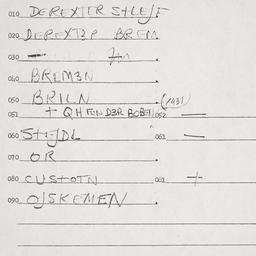 010 DEREXTER S+LEJF.
020 DEREXT3R BREM.
030 –
040 BREM3N
050 BRILN . (1431)
051 + QH FUN D3R BOBE 052 —
060 S+EJDL 061 —
070 OR .
080 CUS+OTN 081 +
090 OJSKEMEN .